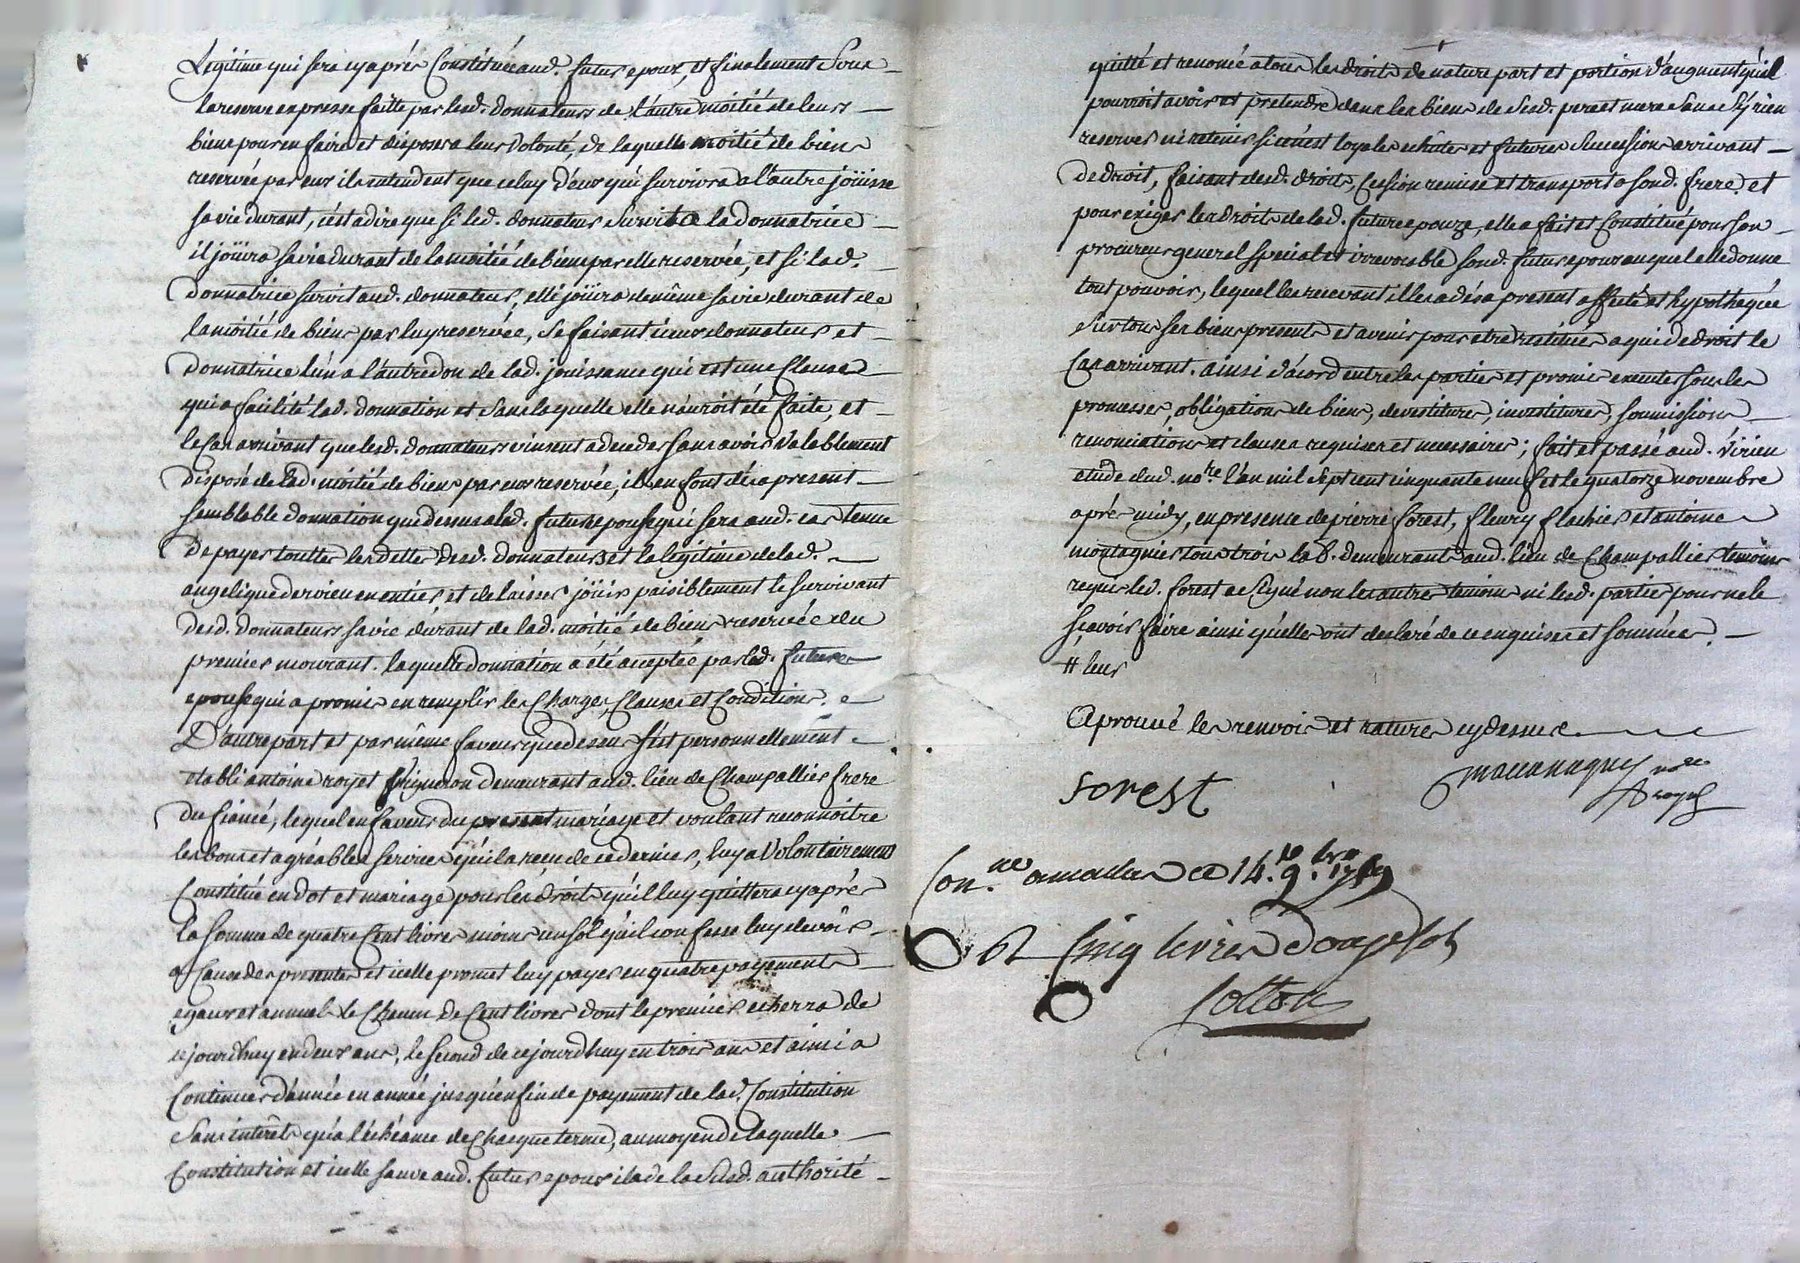 Legitime qui sera cy aprés Constituée aud. futur epoux, et finalement Sous
la reserve expresse faitte par lesd. donnateurs de l'autre moitié de leurs
biens pour en faire et disposer a leur Volonté, de laquelle moitié de biens
reservée par eux ils entendent que celuy d'eux qui survivra a l'autre joüisse
sa vie durant, c'est a dire que si led. donnateur survit a la donnatrice
il joüira sa vie durant de la moitié de biens par elle reservée, et si lad.
Donnatrice survit aud. donnateur, elle joüira de même sa vie durant de
la moitié de biens par luy reservée, se faisant iceux donnateur et
donnatrice l'un a l'autre don de lad. joüissance qui est une Clause
qui a facilité lad. donnation et sans laquelle elle n'auroit été faite, et
le Cas arrivant que lesd. donnateurs vinsent a deceder sans avoir Valablement
disposé de lad. moitié de biens par eux reservée, ils en font dés a present
semblable donnation que dessus a lad. future epouse qui sera aud. cas tenue
De payer toutes les dettes desd. donnateurs et la légitime de lad.
angelique dervieu en entier et de laisser joüir paisiblement le survivant
desd. donnateurs sa vie durant de lad. moitié de biens reservée du
premier mourant. laquelle donnation a été aceptée par lad. future
epouse qui a promis en remplir les Charges, Clauses et Conditions.
D'autre part et par même faveur que dessus s'est personnellement
etabli antoine royet vigneron demeurant aud. lieu de Champallier frere
du fiancé, lequel en faveur du present mariage et voulant reconnoitre
les bons et agréables services qu'il a reçu de ce dernier, luy a Volontairement
Constitué en dot et mariage pour les droits qu'il luy quittera cy aprés
la somme de quatre Cent livres moins un sol qu'il confesse luy devoir
a Cause des presentes et icelle promet luy payer en quatre payements
egaux et annuels de Chacun de Cent livres dont le premier echerra de
ce jourdhuy en deux ans, le second de ce jourdhuy en trois ans et ainsi a
Continuer d'année en année jusqu'en fin de payement de lad. Constitution
sans interêts qu'a l'échéance de Chacque terme, au moyen de laquelle
Constitution et icelle sauve aud. futur epoux il a de la Susd. authorité
quitté et renoncé a tous les droits de nature part et portion d'augment qu'il
pourroit avoir et pretendre dans les biens de Sesd. pere et mere sans s'y rien
reserver ni retenir si ce n'est loyales echûtes et futures Successions arrivant
De droit, faisant desd. droits, Cession remise et transport a sond. frere, et
pour exiger les droits de lad. future epouze, elle a fait et Constitué pour son
procureur general special et irrevocable sond. futur epoux auquel elle donne
tout pouvoir, lequel les recevant il les a dés a present affecté et hypothequée
Sur tous ses biens presents et avenir pour etre restitués a qui de droit le
Cas arrivant. ainsi d'acord entre les parties et promis executer sous les
promesses, obligations de biens, devestitures, investitures, soumissions
renonciations et clauses requises et necessaires; fait et passé aud. Virieu
etude dud. no.re l'an mil Sept cent cinquante neuf et le quatorze novembre
aprés midy, en presence de pierre forest, fleury flachier et antoine
montagnier tous trois lab. demeurants aud. lieu de Champallier temoins
requis led. forest a Signé non les autres temoins ni lesd. parties pour ne le
sçavoir faire ainsi qu'elles ont declaré de ce enquises et sommées.
# leur
Aprouvé les renvois et ratures cy dessus
forest
no.re
royal
Con.lle a 14. 9.bre 1759
Cinq livres Douze sols